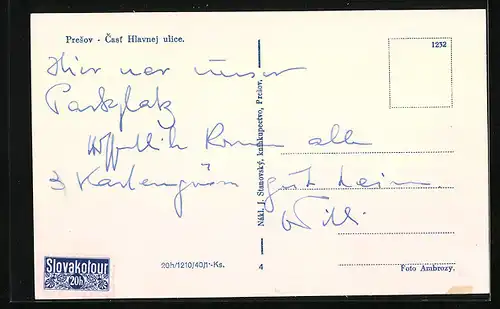 Prešov - Časť Hlavnej ulice.
1232
Hier war unser
Parkplatz
Hoffentlich kommen alle
3 Kartengrüße gut heim
Willi
Nákl. J. Stanovský, kníhkupectvo, Prešov.
Slovakolour
20h
20h/1210/40/1-Ks.
4
Foto Ambrozy.